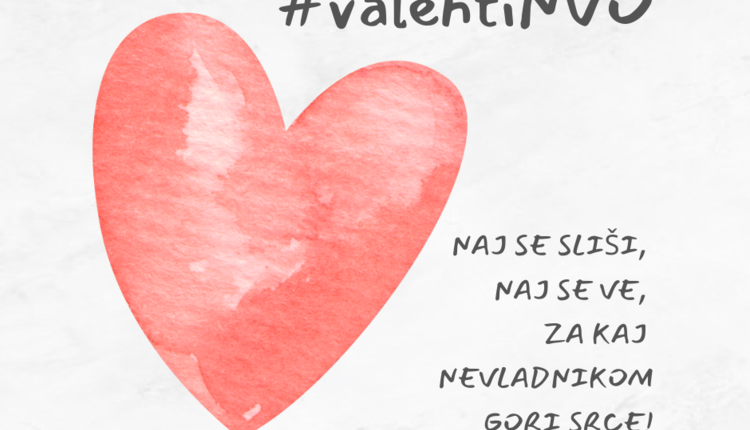 #valentiNVO
NAJ SE SLIŠI,
NAJ SE VE,
ZA KAJ
NEVLADNIKOM
GORI SRCE!